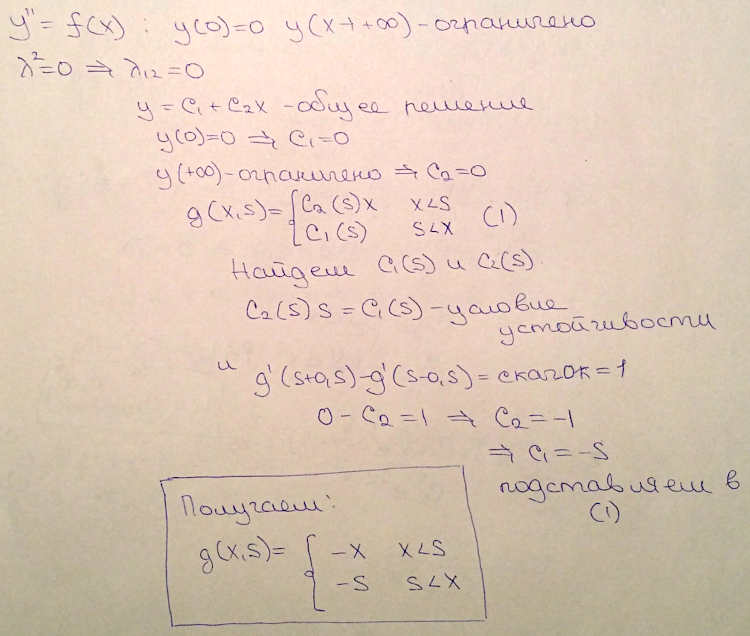 y'' = f(x) : y(0)=0 y(x→+∞) - ограничено
λ²=0 ⇒ λ₁₂=0
y = C₁ + C₂x - общее решение
y(0)=0 ⇒ C₁=0
y(+∞) - ограничено ⇒ C₂=0
g(x,s) = { C₂(s)x x<s
C₁(s) s<x (1)
Найдем C₁(s) и C₂(s).
C₂(s)s = C₁(s) - условие
устойчивости
и g'(s+0,s) - g'(s-0,s) = скачок = 1
0 - C₂ = 1 ⇒ C₂ = -1
⇒ C₁ = -s
подставляем в
(1)
Получаем:
g(x,s) = { -x x<s
-s s<x